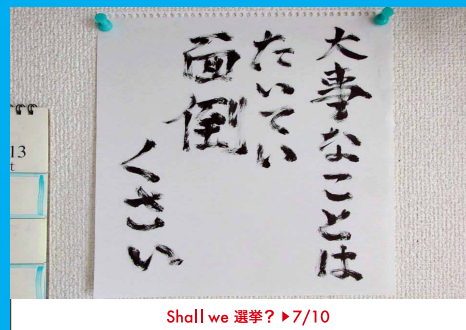 大事なことは
たいてい
面倒
くさい
13
t
Shall we 選挙? ▶7/10